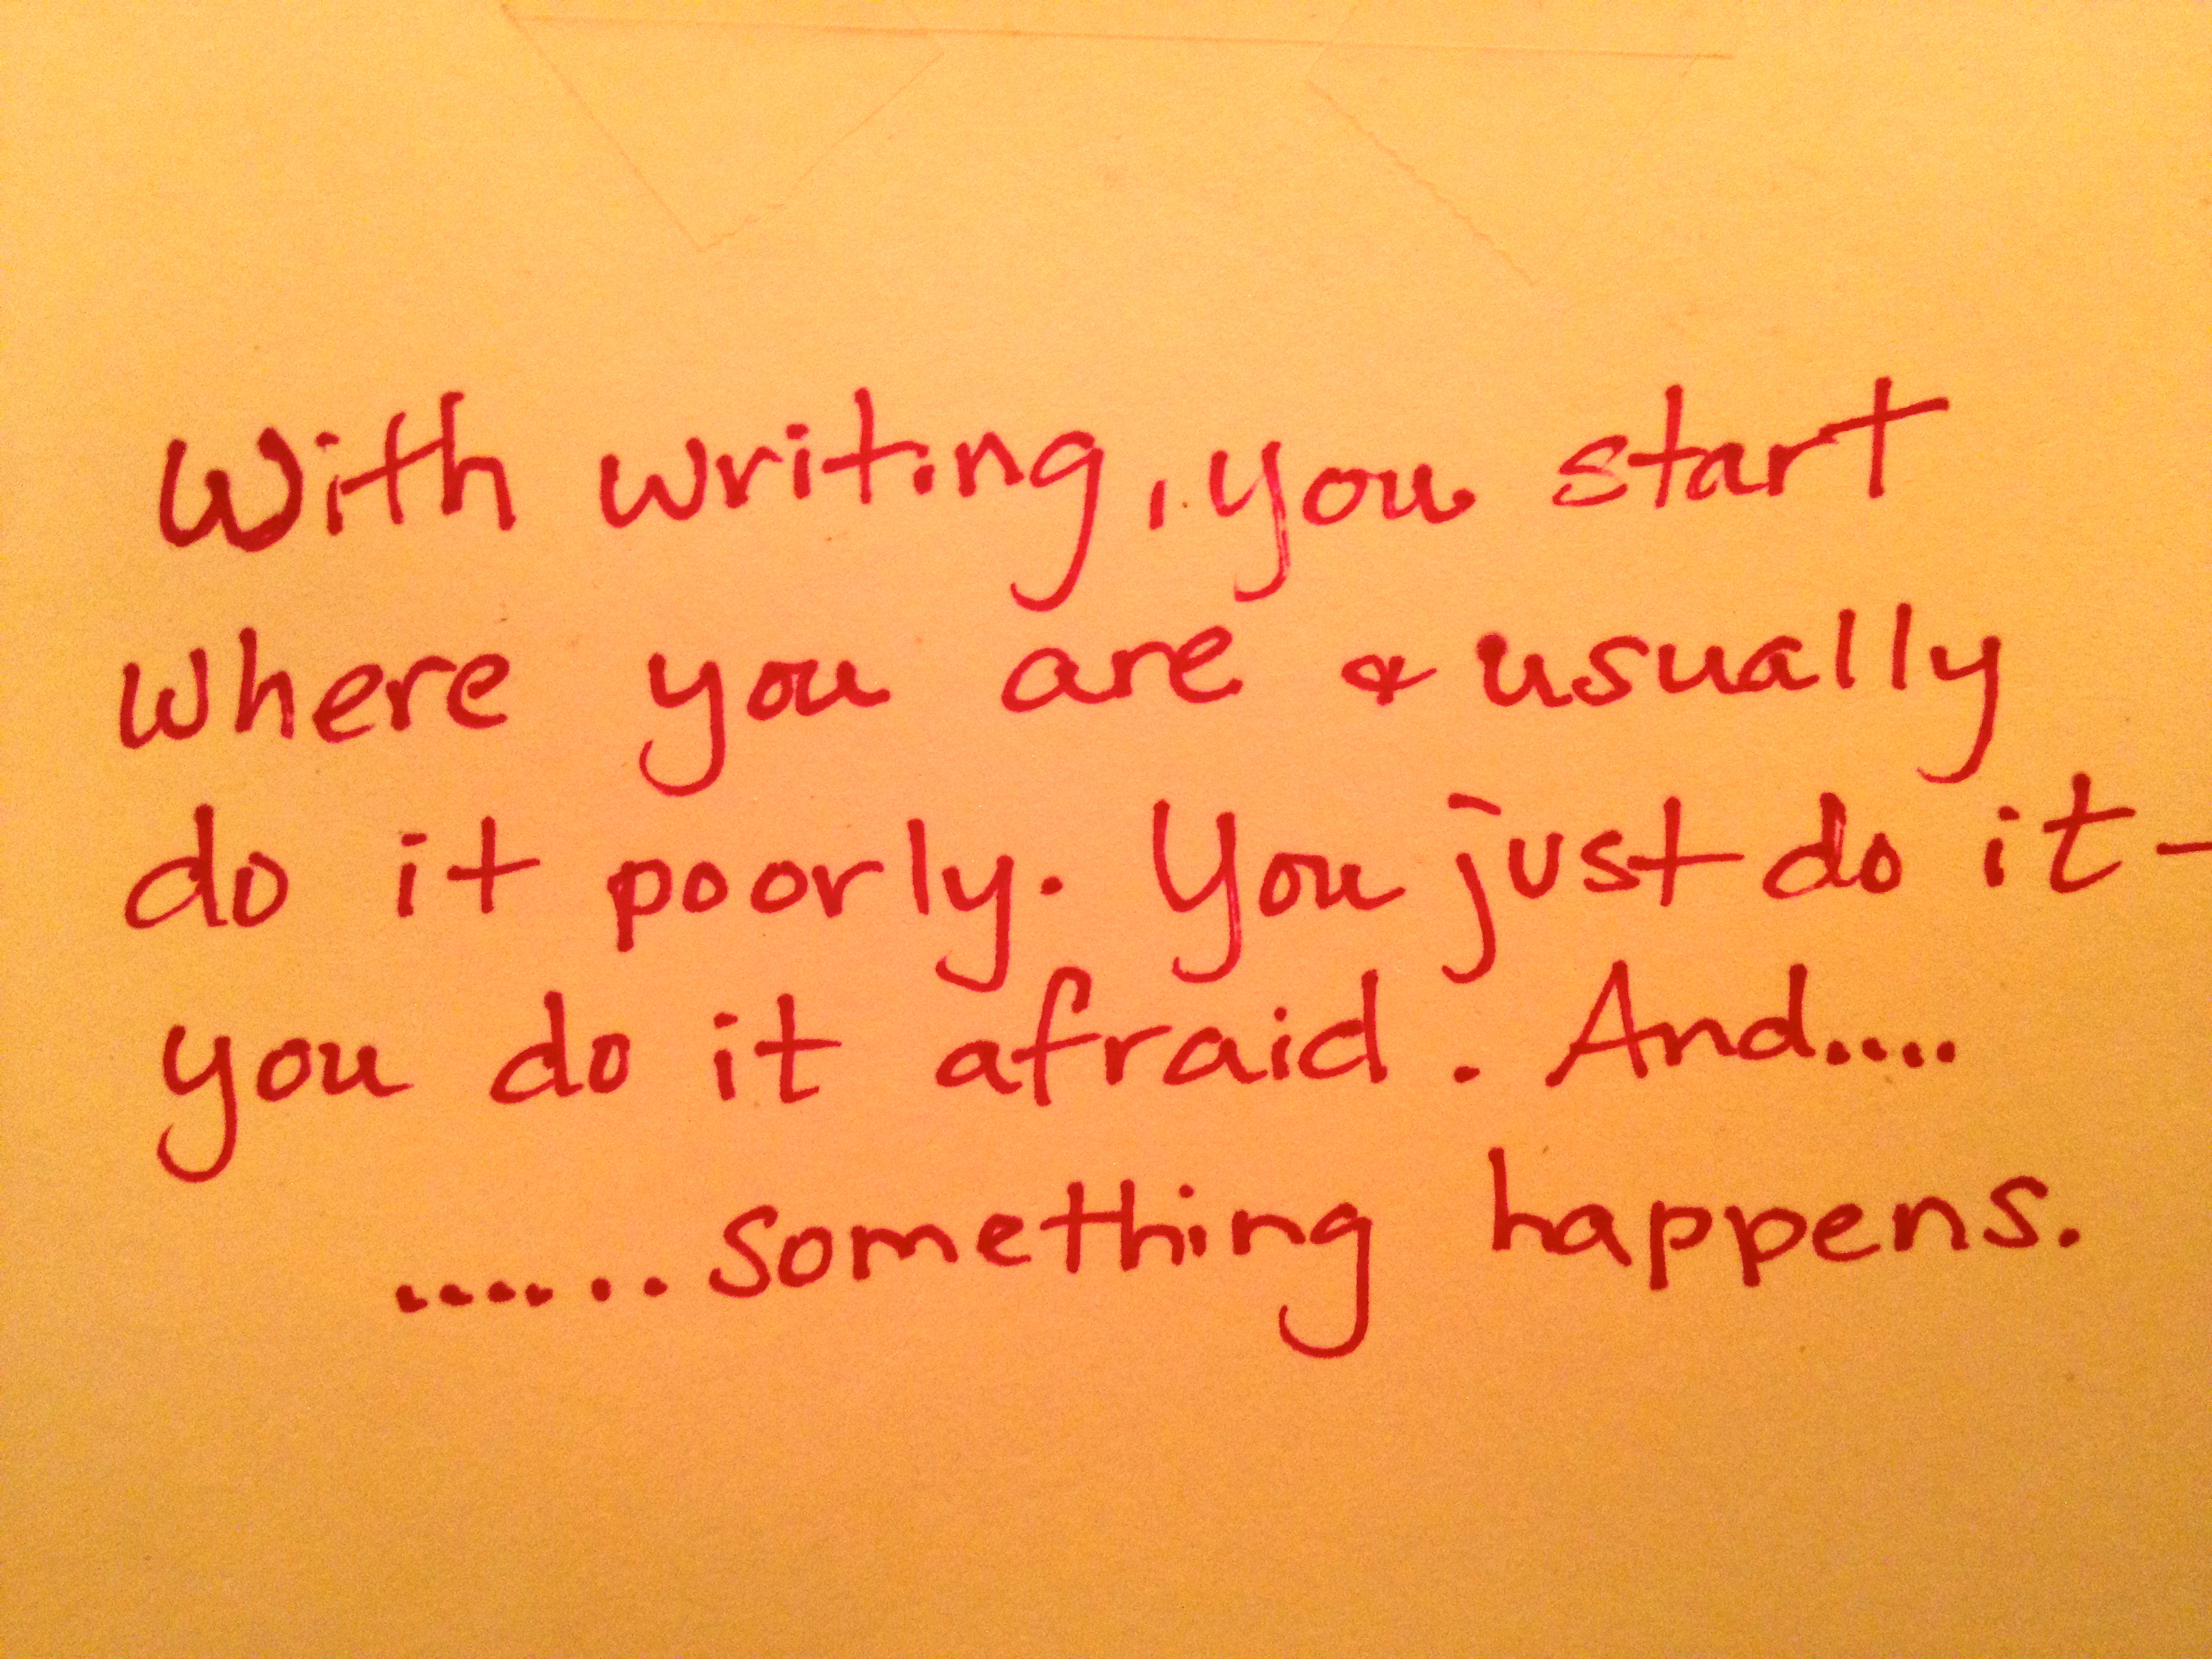 With writing, you start
where you are & usually
do it poorly. You just do it-
you do it afraid. And....
......something happens.